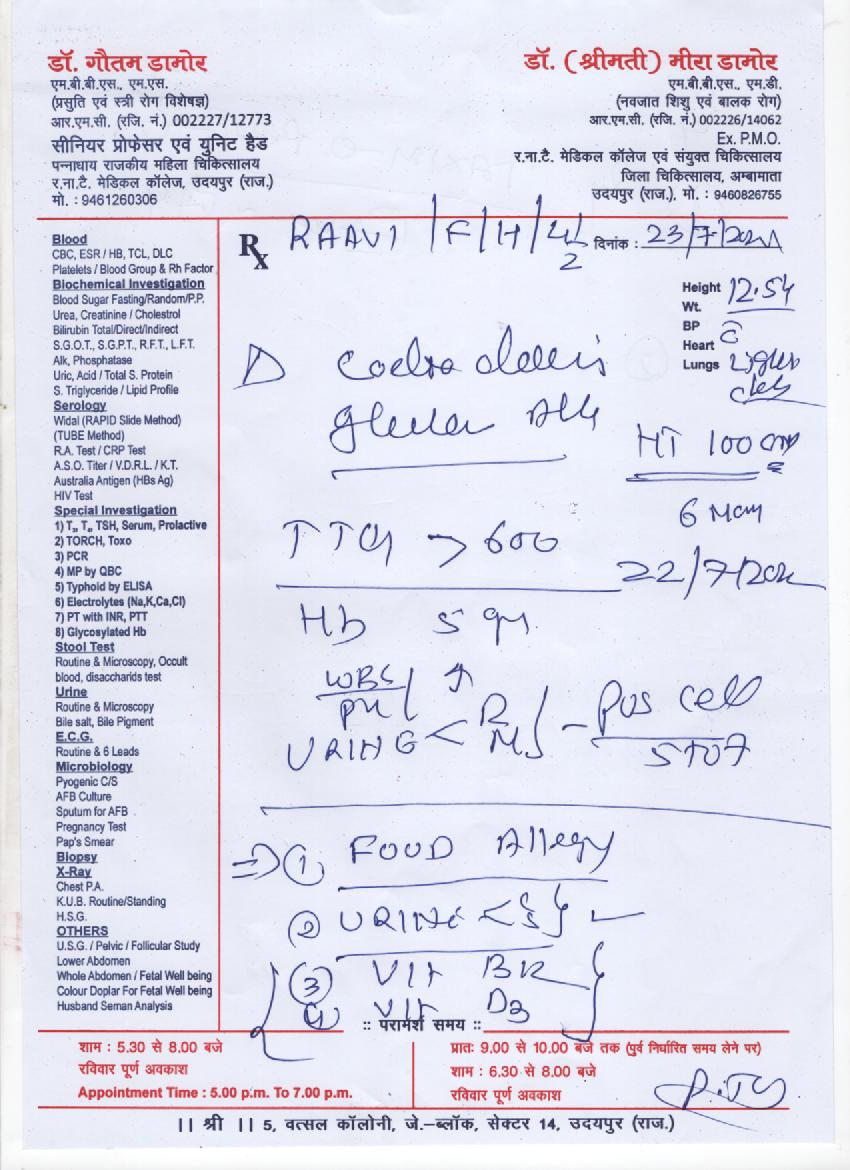 डॉ. गौतम डामोर
एम.बी.बी.एस., एम.एस.
(प्रसुति एवं स्त्री रोग विशेषज्ञ)
आर.एम.सी. (रजि. नं.) 002227/12773
सीनियर प्रोफेसर एवं युनिट हैड
पन्नाधाय राजकीय महिला चिकित्सालय
र.ना.टै. मेडिकल कॉलेज, उदयपुर (राज.)
मो. : 9461260306
डॉ. (श्रीमती) मीरा डामोर
एम.बी.बी.एस., एम.डी.
(नवजात शिशु एवं बालक रोग)
आर.एम.सी. (रजि. नं.) 002226/14062
Ex. P.M.O.
र.ना.टै. मेडिकल कॉलेज एवं संयुक्त चिकित्सालय
जिला चिकित्सालय, अम्बामाता
उदयपुर (राज.), मो. : 9460826755
Blood
CBC, ESR / HB, TCL, DLC
Platelets / Blood Group & Rh Factor
Biochemical Investigation
Blood Sugar Fasting/Random/P.P.
Urea, Creatinine / Cholestrol
Bilirubin Total/Direct/Indirect
S.G.O.T., S.G.P.T., R.F.T., L.F.T.
Alk, Phosphatase
Uric, Acid / Total S. Protein
S. Triglyceride / Lipid Profile
Serology
Widal (RAPID Slide Method)
(TUBE Method)
R.A. Test / CRP Test
A.S.O. Titer / V.D.R.L. / K.T.
Australia Antigen (HBs Ag)
HIV Test
Special Investigation
1) T₃, T₄, TSH, Serum, Prolactive
2) TORCH, Toxo
3) PCR
4) MP by QBC
5) Typhoid by ELISA
6) Electrolytes (Na,K,Ca,Cl)
7) PT with INR, PTT
8) Glycosylated Hb
Stool Test
Routine & Microscopy, Occult
blood, disaccharids test
Urine
Routine & Microscopy
Bile salt, Bile Pigment
E.C.G.
Routine & 6 Leads
Microbiology
Pyogenic C/S
AFB Culture
Sputum for AFB
Pregnancy Test
Pap's Smear
Biopsy
X-Ray
Chest P.A.
K.U.B. Routine/Standing
H.S.G.
OTHERS
U.S.G. / Pelvic / Follicular Study
Lower Abdomen
Whole Abdomen / Fetal Well being
Colour Doplar For Fetal Well being
Husband Seman Analysis
Rx RAAVI /F/H/ दिनांक : 23/7/
Height
Wt. 12.54
BP
Heart
Lungs
HT 100 cm
TTG → 600
22/7/
Hb 5 gm
WBC ↑
URINE < R M - Pus cell
5 TO 7
⇒ ① FOOD Allergy
② URINE <
③ VIT
④ VIT D3
:: परामर्श समय ::
शाम : 5.30 से 8.00 बजे
रविवार पूर्ण अवकाश
Appointment Time : 5.00 p.m. To 7.00 p.m.
प्रातः 9.00 से 10.00 बजे तक (पुर्व निर्धारित समय लेने पर)
शाम : 6.30 से 8.00 बजे
रविवार पूर्ण अवकाश
।। श्री ।। 5, वत्सल कॉलोनी, जे.–ब्लॉक, सेक्टर 14, उदयपुर (राज.)